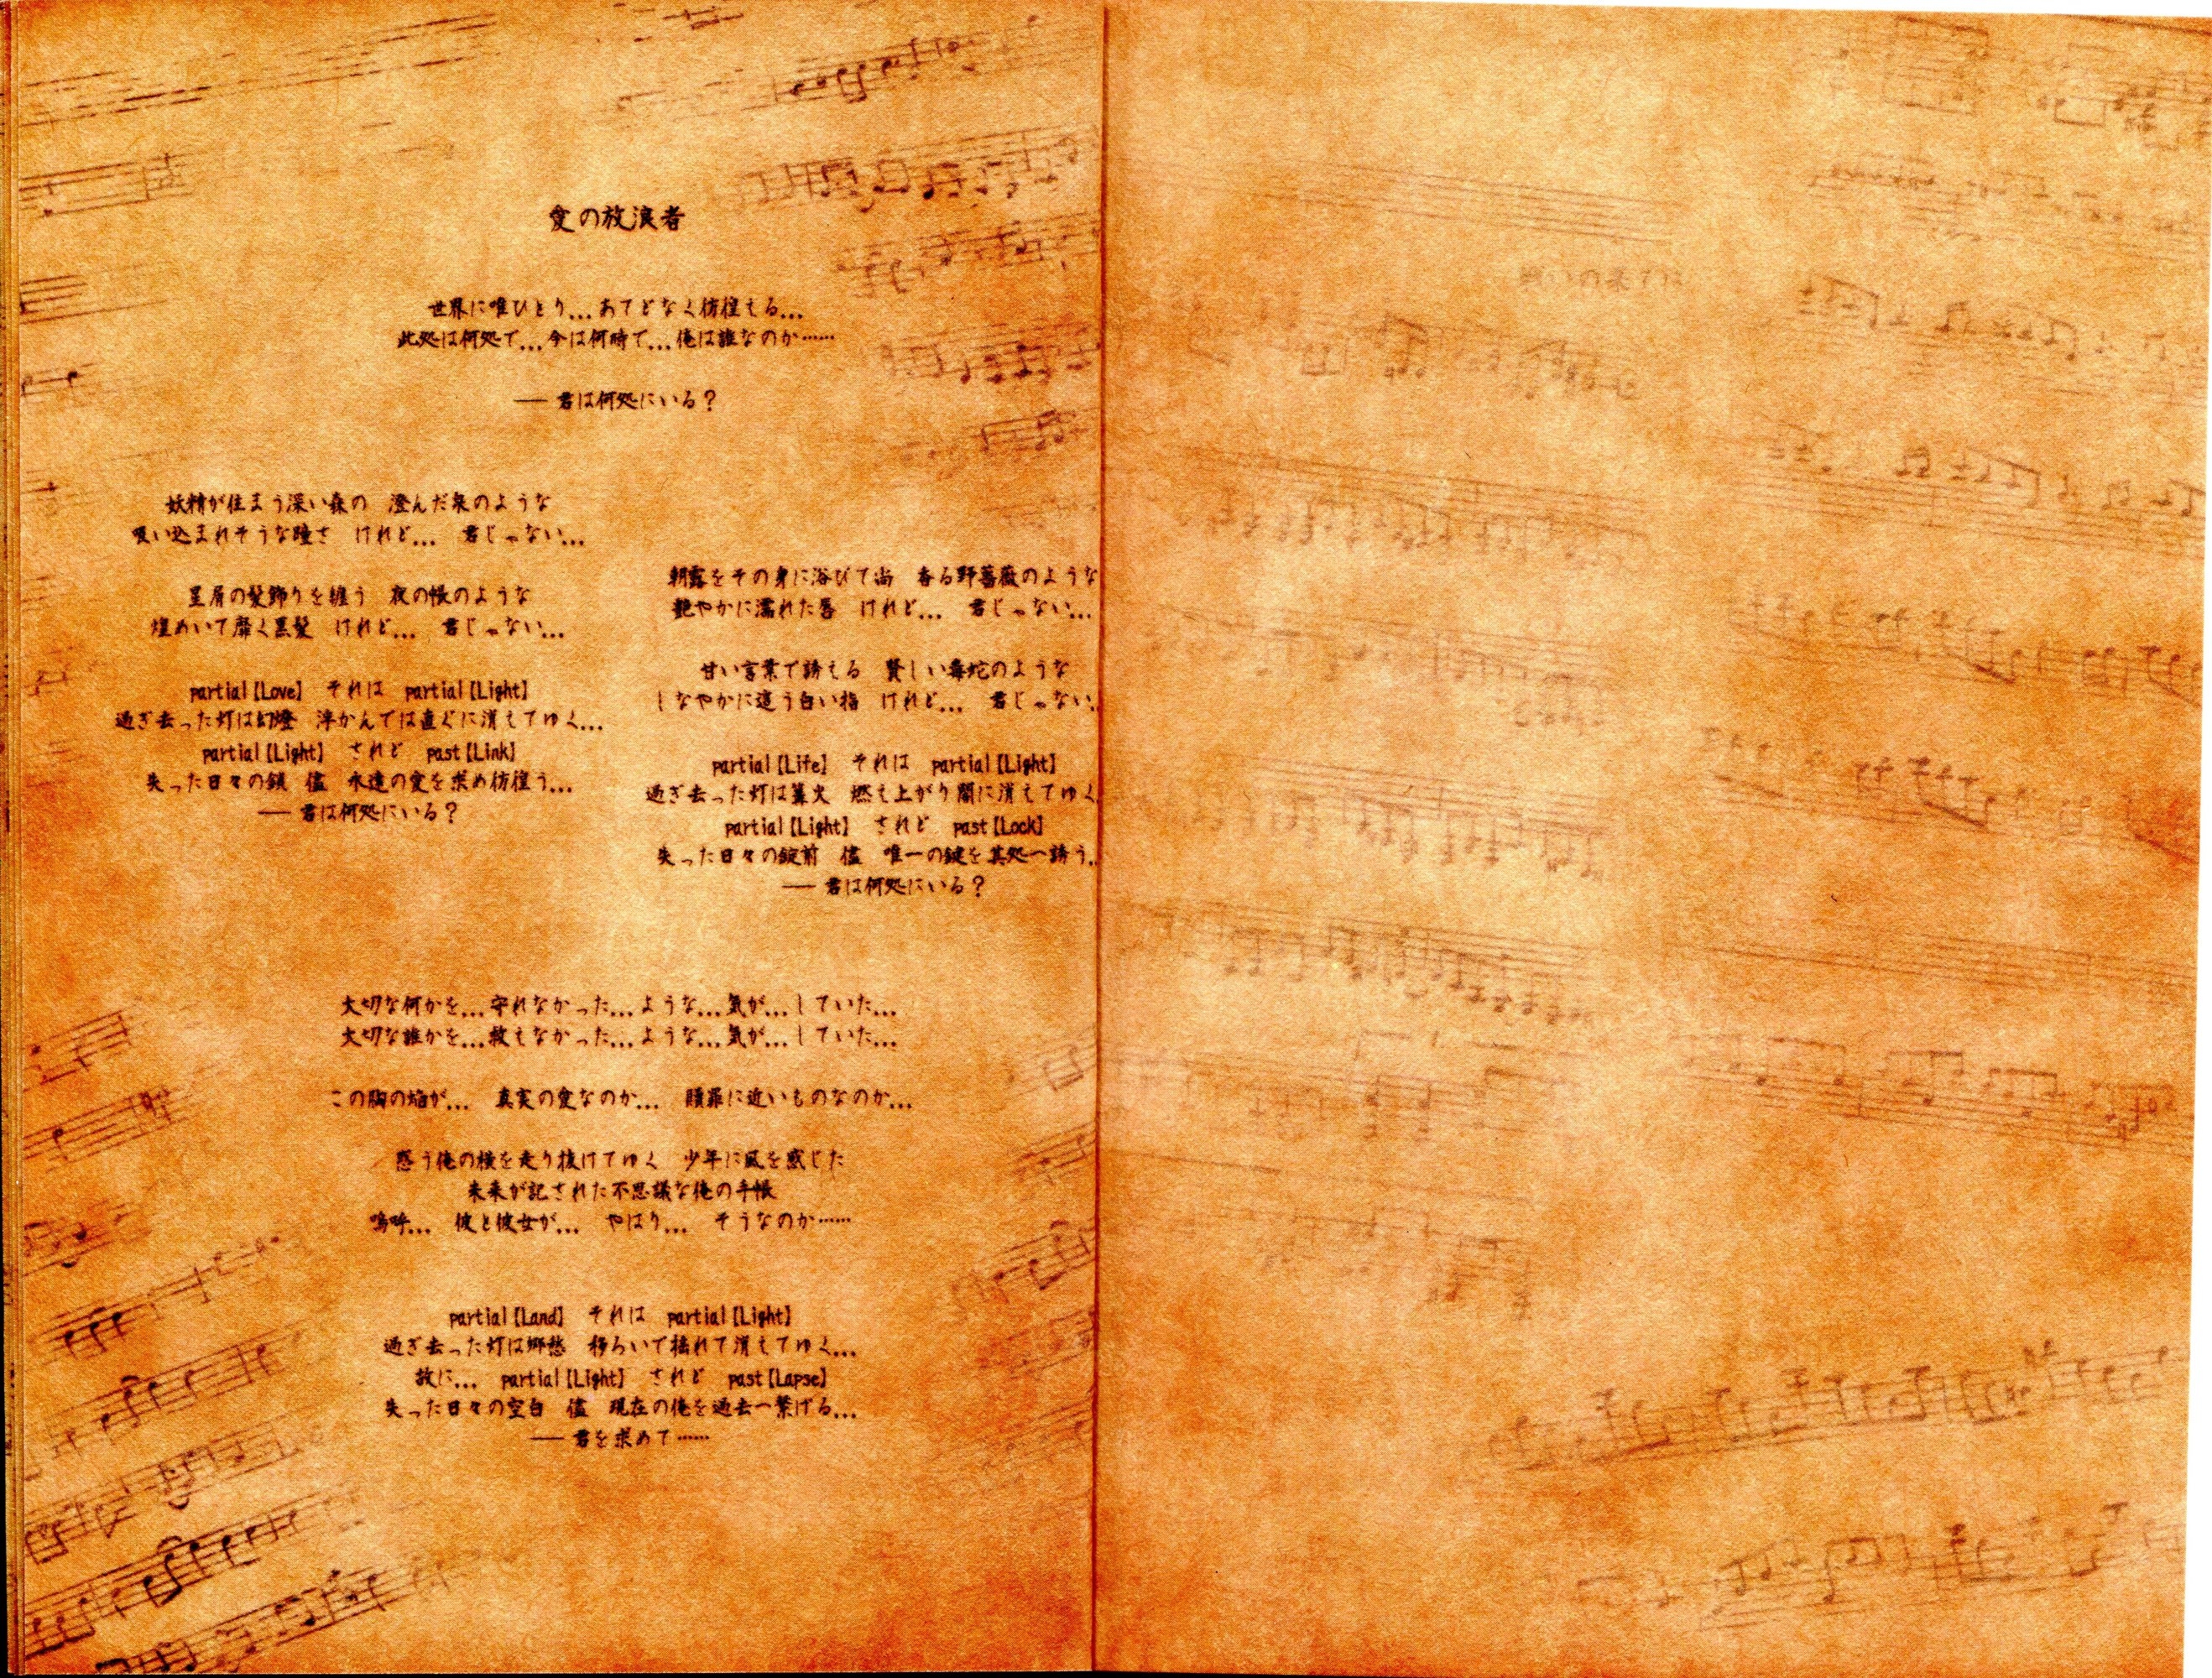 愛の放浪者
世界に唯ひとり...あてどなく彷徨える...
此処は何処で...今は何時で...俺は誰なのか……
── 君は何処にいる？
妖精が住まう深い森の　澄んだ泉のような
吸い込まれそうな瞳さ　けれど...　君じゃない...
星屑の髪飾りを纏う　夜の帳のような
煌めいて靡く黒髪　けれど...　君じゃない...
partial【Love】　それは　partial【Light】
過ぎ去った灯は幻燈　浮かんでは直ぐに消えてゆく...
partial【Light】　されど　past【Link】
失った日々の鎖　儘　永遠の愛を求め彷徨う...
── 君は何処にいる？
朝露をその身に浴びて尚　香る野薔薇のような
艶やかに濡れた唇　けれど...　君じゃない...
甘い言葉で誘える　賢しい毒蛇のような
しなやかに這う白い指　けれど...　君じゃない..
partial【Life】　それは　partial【Light】
過ぎ去った灯は篝火　燃え上がり闇に消えてゆく
partial【Light】　されど　past【Lock】
失った日々の錠前　儘　唯一の鍵を其処へ誘う..
── 君は何処にいる？
大切な何かを...守れなかった...ような...気が...していた...
大切な誰かを...救えなかった...ような...気が...していた...
この胸の焔が...　真実の愛なのか...　贖罪に近いものなのか...
惑う俺の横を走り抜けてゆく　少年に風を感じた
未来が記された不思議な俺の手帳
嗚呼...　彼と彼女が...　やはり...　そうなのか……
partial【Land】　それは　partial【Light】
過ぎ去った灯は郷愁　移ろいで揺れて消えてゆく...
故に...　partial【Light】　されど　past【Lapse】
失った日々の空白　儘　現在の俺を過去へ繋げる...
── 君を求めて……